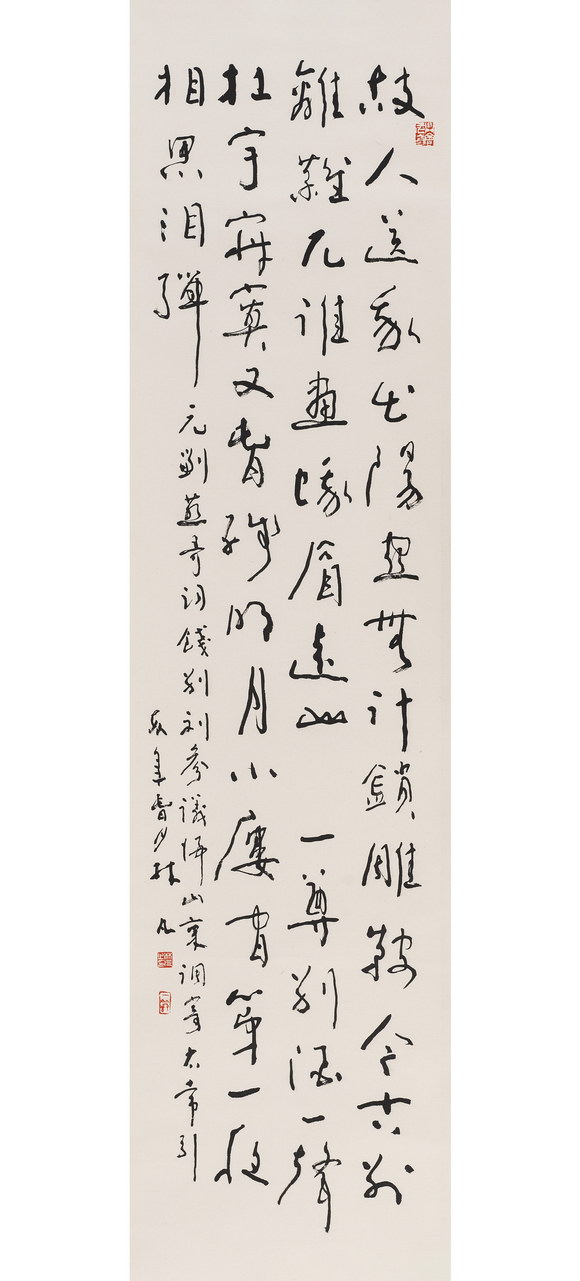 故人送我出陽關無計鎖雕鞍今古別
離難兀誰畫蛾眉遠山 一尊別酒一聲
杜宇寂寞又春殘明月小廔間第一夜
相思泪彈
元劉燕哥詞餞別參議歸山東調寄太常引
年春林凡